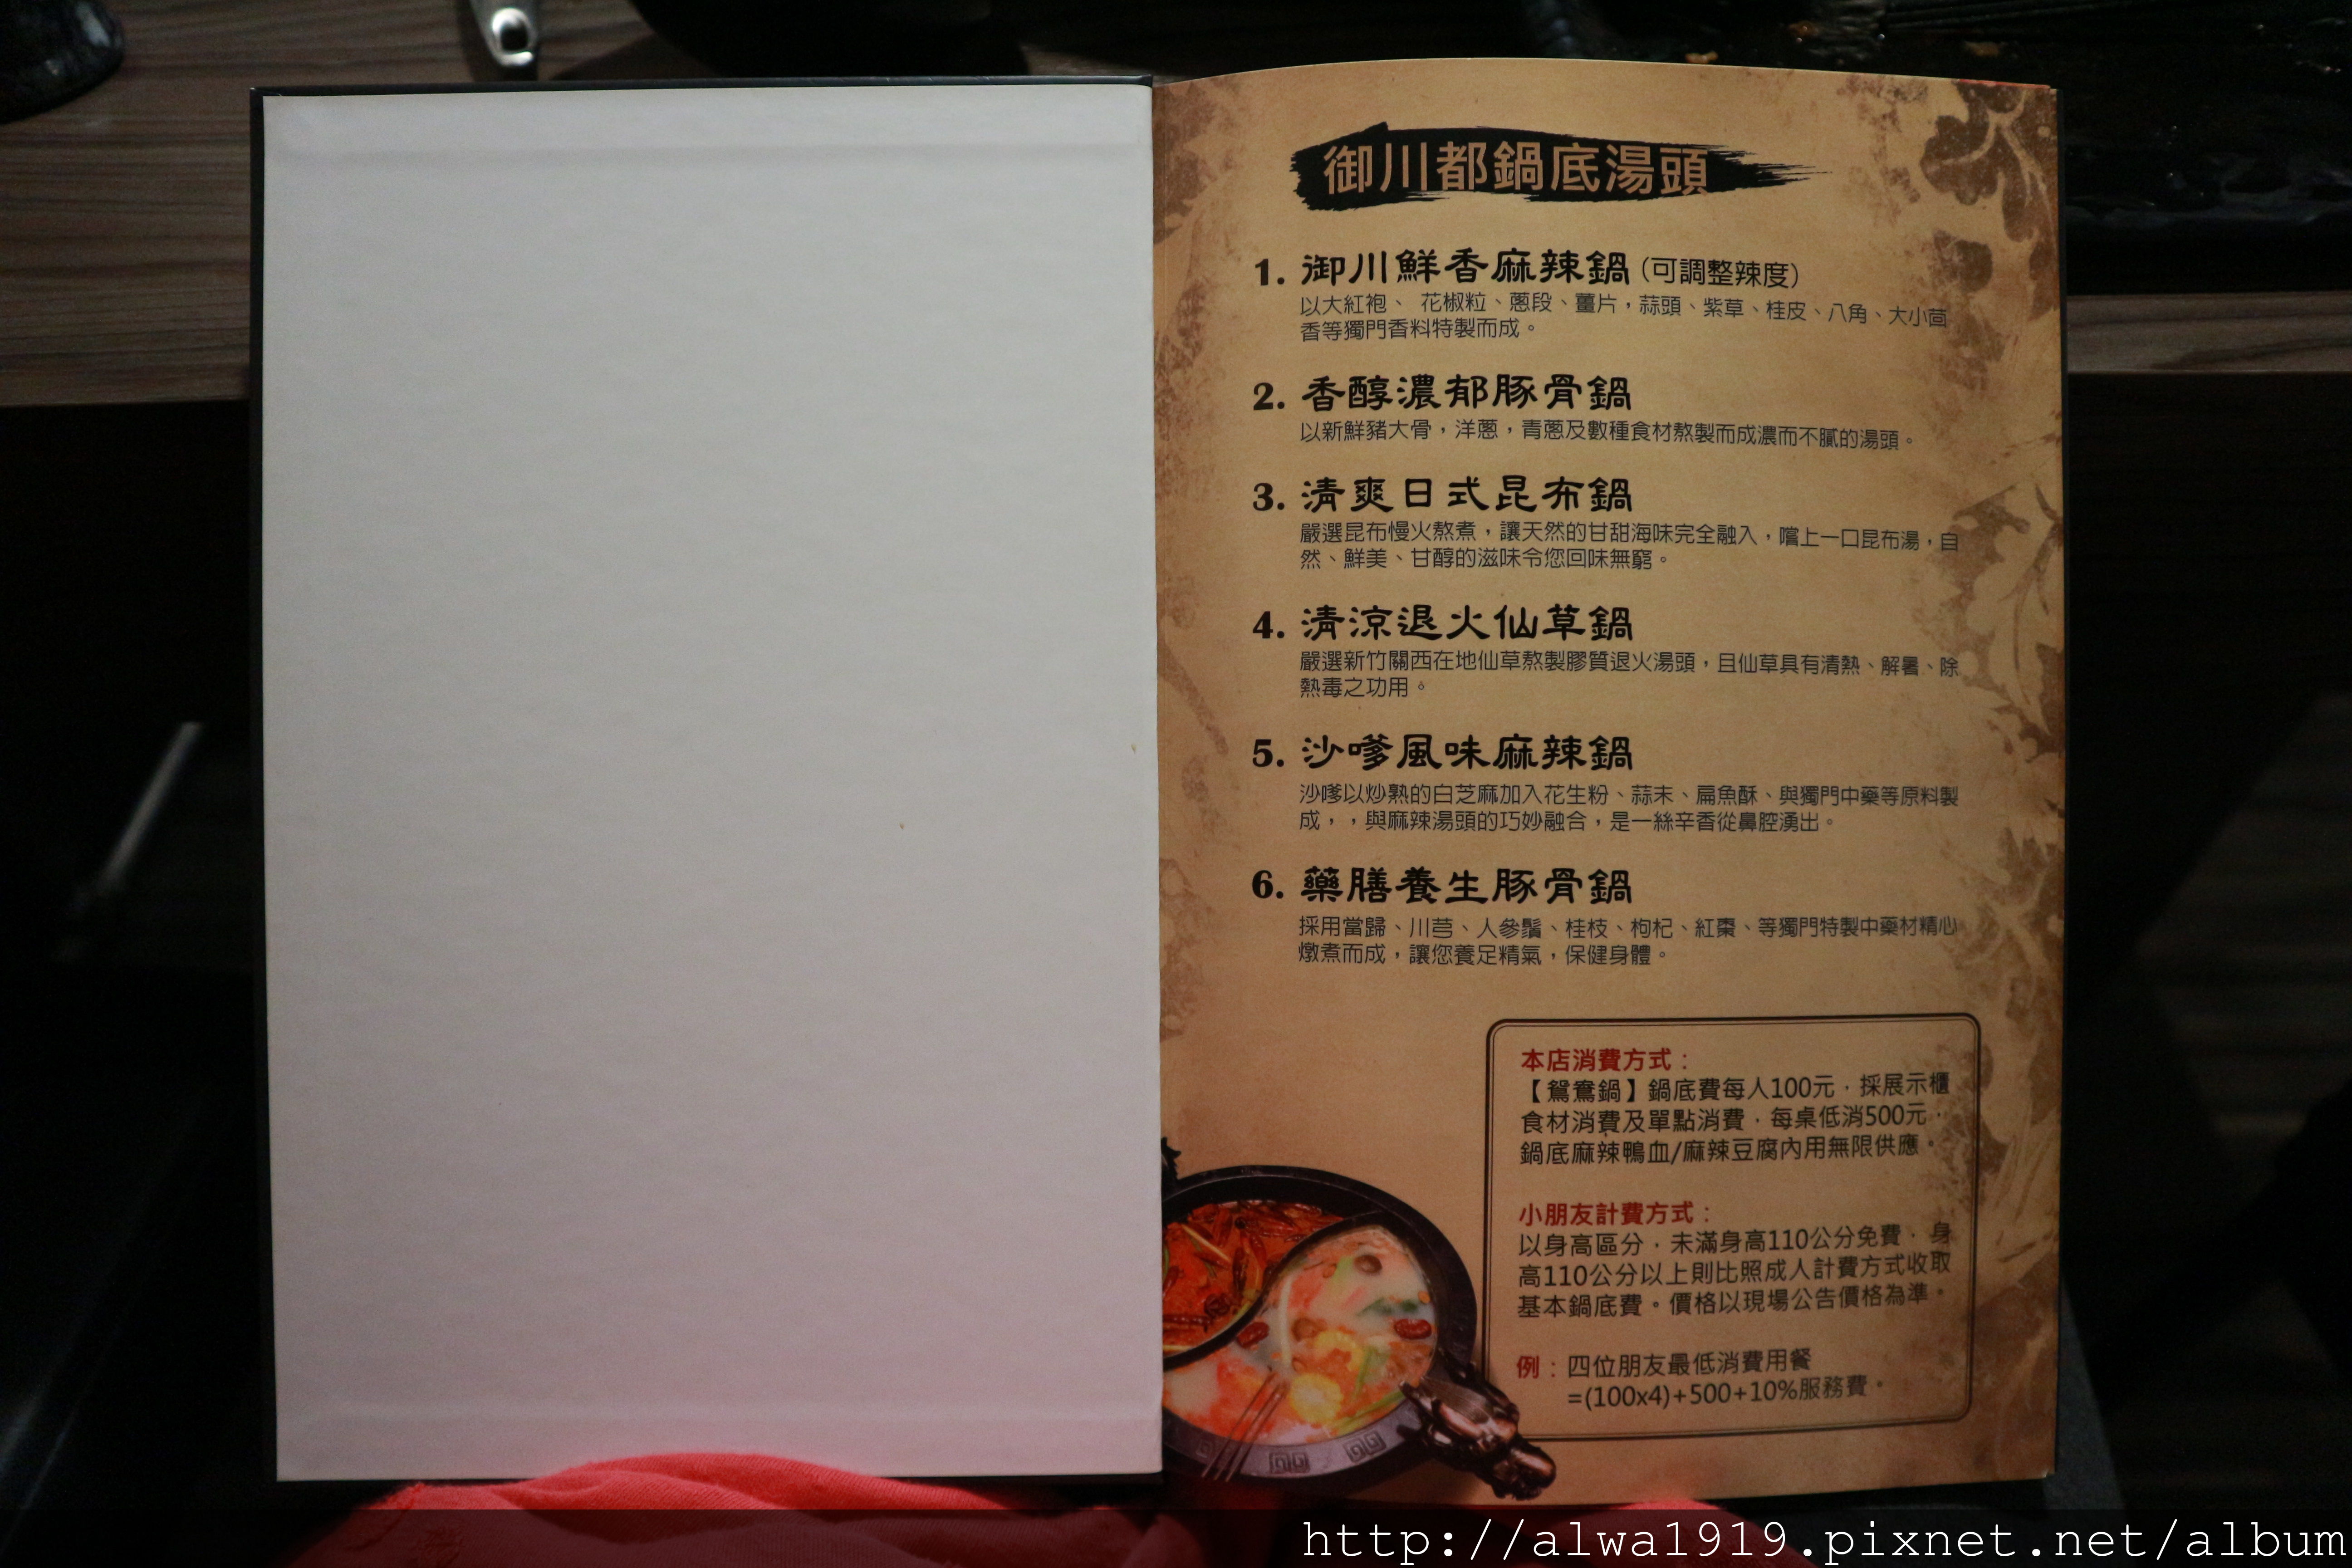 御川都鍋底湯頭
1. 御川鮮香麻辣鍋(可調整辣度)
以大紅袍、 花椒粒、蔥段、薑片，蒜頭、紫草、桂皮、八角、大小茴
香等獨門香料特製而成。
2. 香醇濃郁豚骨鍋
以新鮮豬大骨，洋蔥，青蔥及數種食材熬製而成濃而不膩的湯頭。
3. 清爽日式昆布鍋
嚴選昆布慢火熬煮，讓天然的甘甜海味完全融入，嚐上一口昆布湯，自
然、鮮美、甘醇的滋味令您回味無窮。
4. 清涼退火仙草鍋
嚴選新竹關西在地仙草熬製膠質退火湯頭，且仙草具有清熱、解暑、除
熱毒之功用。
5. 沙嗲風味麻辣鍋
沙嗲以炒熟的白芝麻加入花生粉、蒜末、扁魚酥、與獨門中藥等原料製
成，，與麻辣湯頭的巧妙融合，是一絲辛香從鼻腔湧出。
6. 藥膳養生豚骨鍋
採用當歸、川芎、人參鬚、桂枝、枸杞、紅棗、等獨門特製中藥材精心
燉煮而成，讓您養足精氣，保健身體。
本店消費方式：
【鴛鴦鍋】鍋底費每人100元，採展示櫃
食材消費及單點消費，每桌低消500元，
鍋底麻辣鴨血/麻辣豆腐內用無限供應。
小朋友計費方式：
以身高區分，未滿身高110公分免費，身
高110公分以上則比照成人計費方式收取
基本鍋底費。價格以現場公告價格為準。
例：四位朋友最低消費用餐
=(100x4)+500+10%服務費。
http://alwa1919.pixnet.net/album